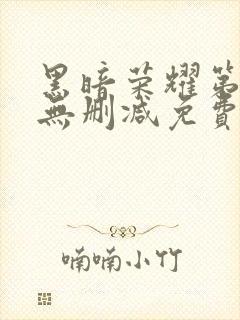 黑暗荣耀第
無删减免費
喃喃小竹